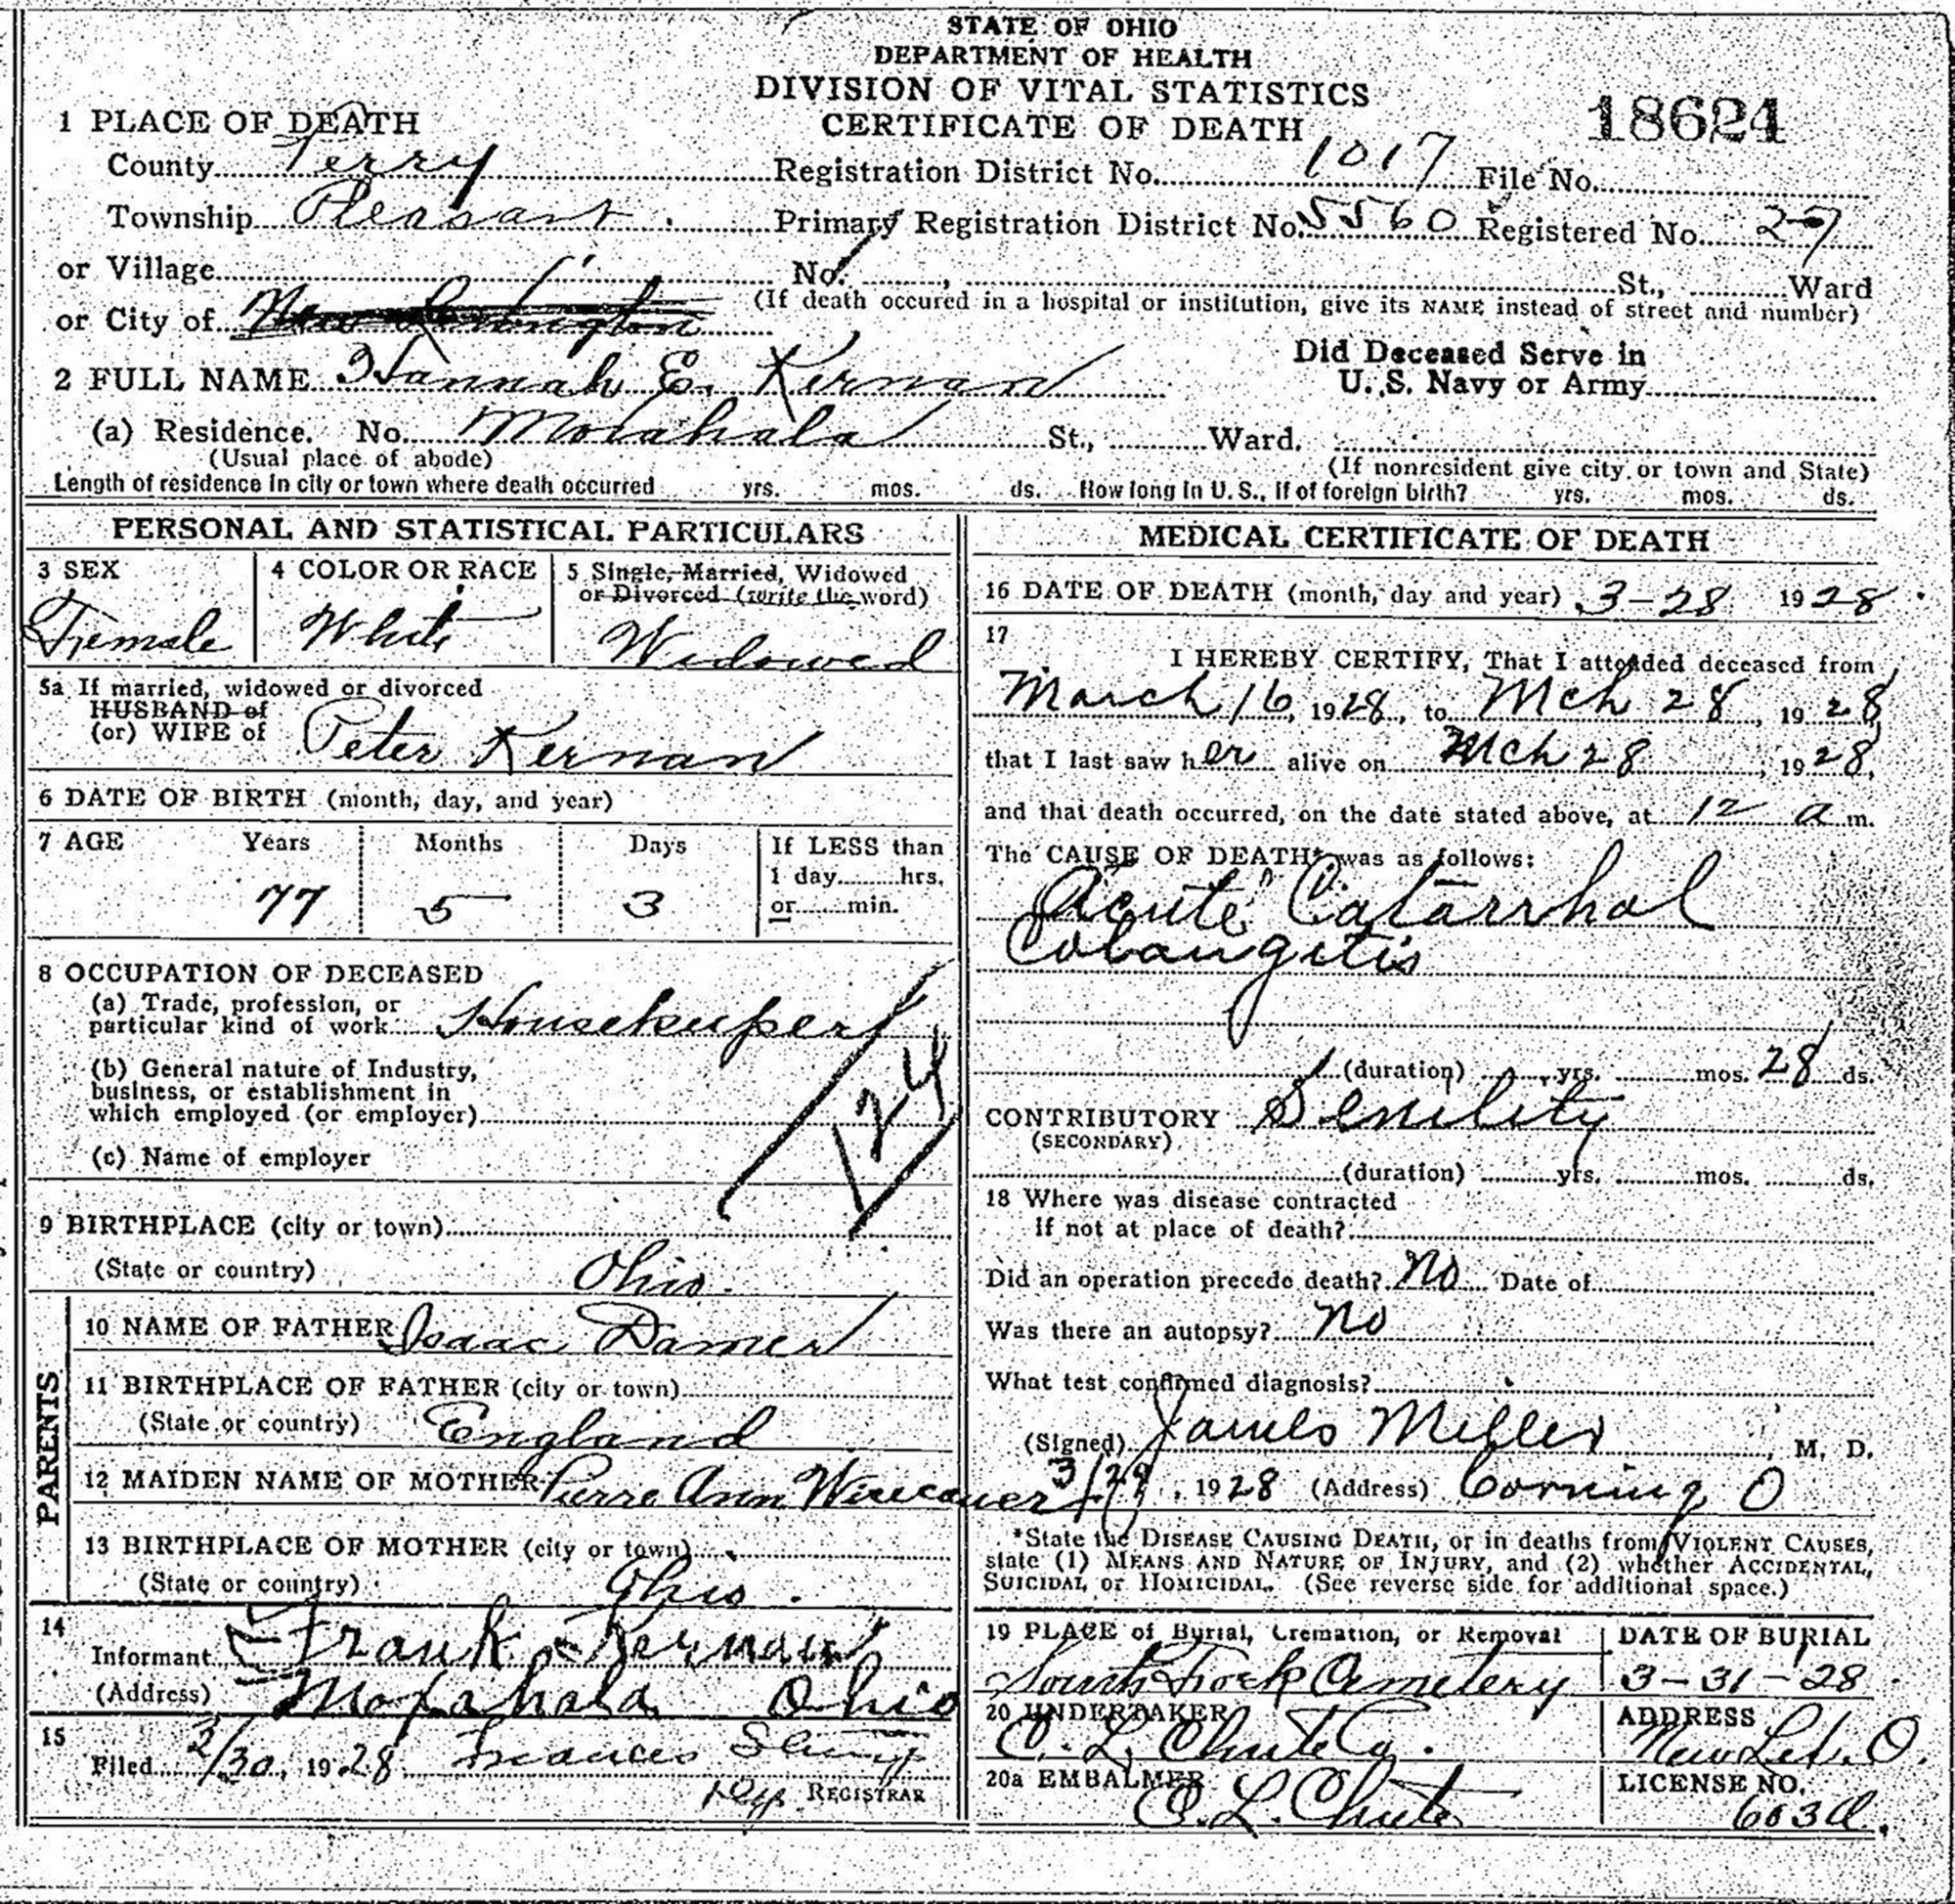 STATE OF OHIO
DEPARTMENT OF HEALTH
DIVISION OF VITAL STATISTICS
CERTIFICATE OF DEATH
18624
1 PLACE OF DEATH
County Perry Registration District No. 1017 File No.
Township Pleasant Primary Registration District No. 5560 Registered No. 27
or Village No. , St., Ward
(If death occured in a hospital or institution, give its NAME instead of street and number)
or City of New Lexington
2 FULL NAME Hannah E. Kernan
Did Deceased Serve in
U. S. Navy or Army
(a) Residence. No. Moxahala St., Ward.
(Usual place of abode) (If nonresident give city or town and State)
Length of residence in city or town where death occurred yrs. mos. ds. How long in U. S., if of foreign birth? yrs. mos. ds.
PERSONAL AND STATISTICAL PARTICULARS
3 SEX
Female
4 COLOR OR RACE
White
5 Single, Married, Widowed
or Divorced (write the word)
Widowed
5a If married, widowed or divorced
HUSBAND of
(or) WIFE of Peter Kernan
6 DATE OF BIRTH (month, day, and year)
7 AGE Years Months Days If LESS than
1 day hrs.
77 5 3 or min.
8 OCCUPATION OF DECEASED
(a) Trade, profession, or
particular kind of work Housekeeper
(b) General nature of Industry,
business, or establishment in
which employed (or employer)
124
(c) Name of employer
9 BIRTHPLACE (city or town)
(State or country) Ohio.
PARENTS
10 NAME OF FATHER Isaac Damer
11 BIRTHPLACE OF FATHER (city or town)
(State or country) England
12 MAIDEN NAME OF MOTHER Ann
13 BIRTHPLACE OF MOTHER (city or town)
(State or country) Ohio.
14
Informant Frank Kernan
(Address) Moxahala Ohio
15
Filed 3/30, 1928 Frances
Dep. REGISTRAR
MEDICAL CERTIFICATE OF DEATH
16 DATE OF DEATH (month, day and year) 3-28 1928
17
I HEREBY CERTIFY, That I attended deceased from
March 16, 1928, to Mch 28, 1928,
that I last saw her alive on Mch 28, 1928,
and that death occurred, on the date stated above, at 12 a m.
The CAUSE OF DEATH* was as follows:
Acute Catarrhal
Colangitis
(duration) yrs. mos. 28 ds.
CONTRIBUTORY Senility
(SECONDARY)
(duration) yrs. mos. ds.
18 Where was disease contracted
if not at place of death?
Did an operation precede death? No Date of
Was there an autopsy? No
What test confirmed diagnosis?
(Signed) James Miller, M. D.
3/29, 1928 (Address) Corning O
*State the DISEASE CAUSING DEATH, or in deaths from VIOLENT CAUSES,
state (1) MEANS AND NATURE OF INJURY, and (2) whether ACCIDENTAL,
SUICIDAL or HOMICIDAL. (See reverse side for additional space.)
19 PLACE of Burial, Cremation, or Removal
South Fork Cemetery
DATE OF BURIAL
3-31-28
20 UNDERTAKER
C. L. Chute Co.
ADDRESS
New Lex. O.
20a EMBALMER
C. L. Chute
LICENSE NO.
603a